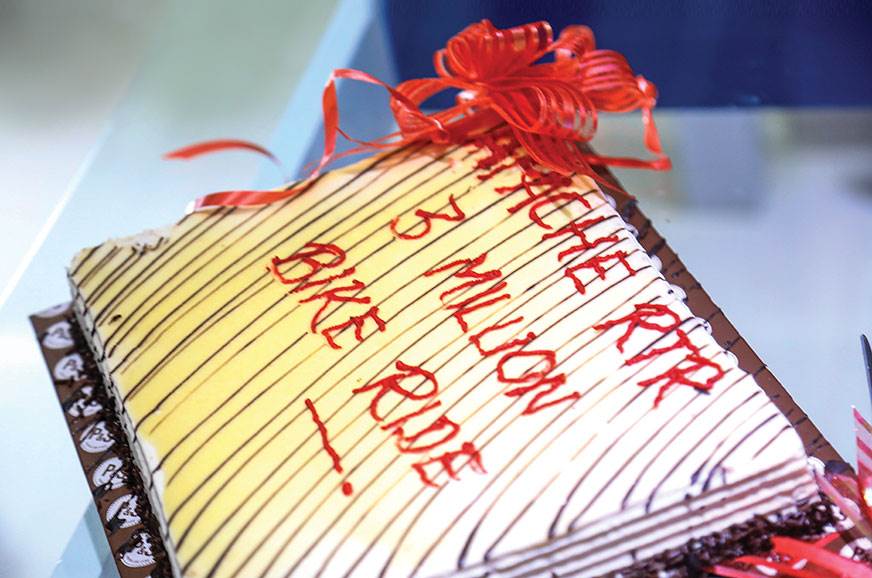 APACHE RTR
3 MILLION
BIKE RIDE
!